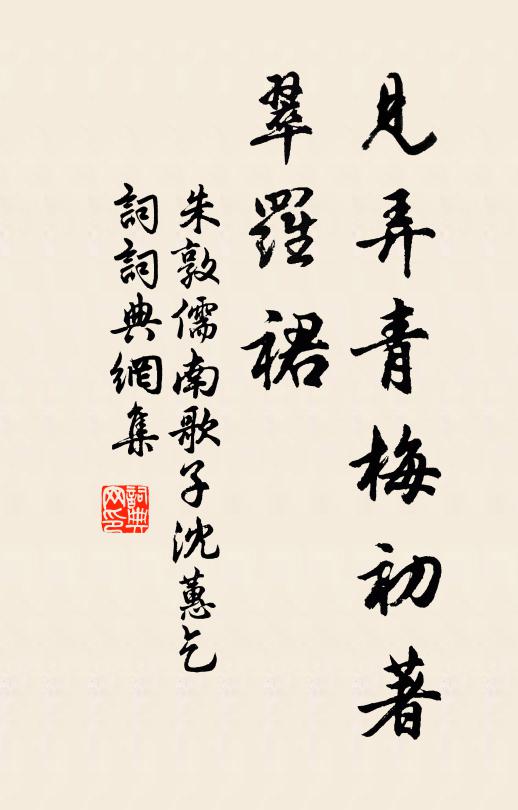 見弄青梅初著
翠羅裙
朱敦儒南歌子沈蕙乞
詞詞典網集
詞典網印